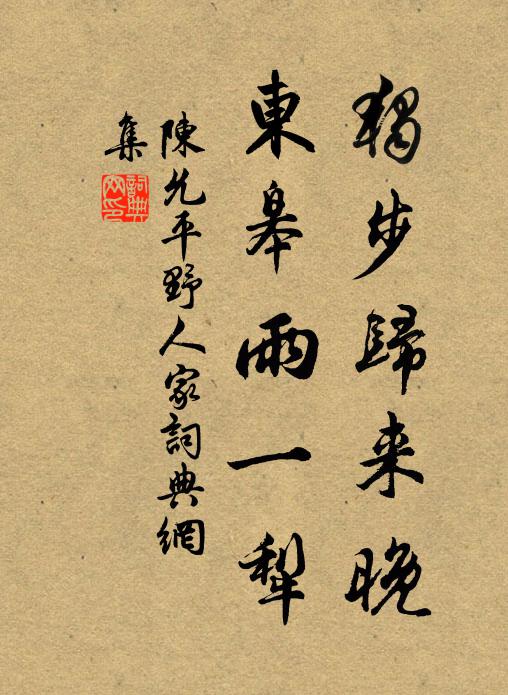 獨步歸来晚
東皋雨一犁
陳允平野人家詞典網
集
詞典網印